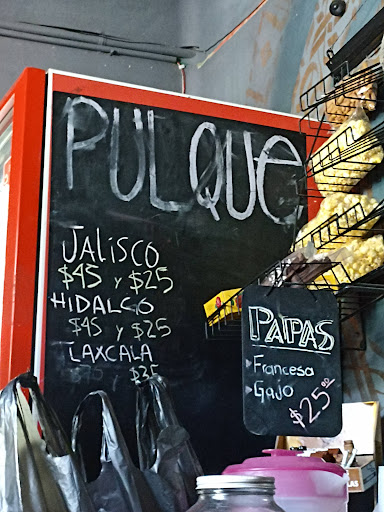 PULQUE
JALISCO
$45 y $25
HIDALGO
$45 y $25
TLAXCALA
PAPAS
Francesa
Gajo
$25.00